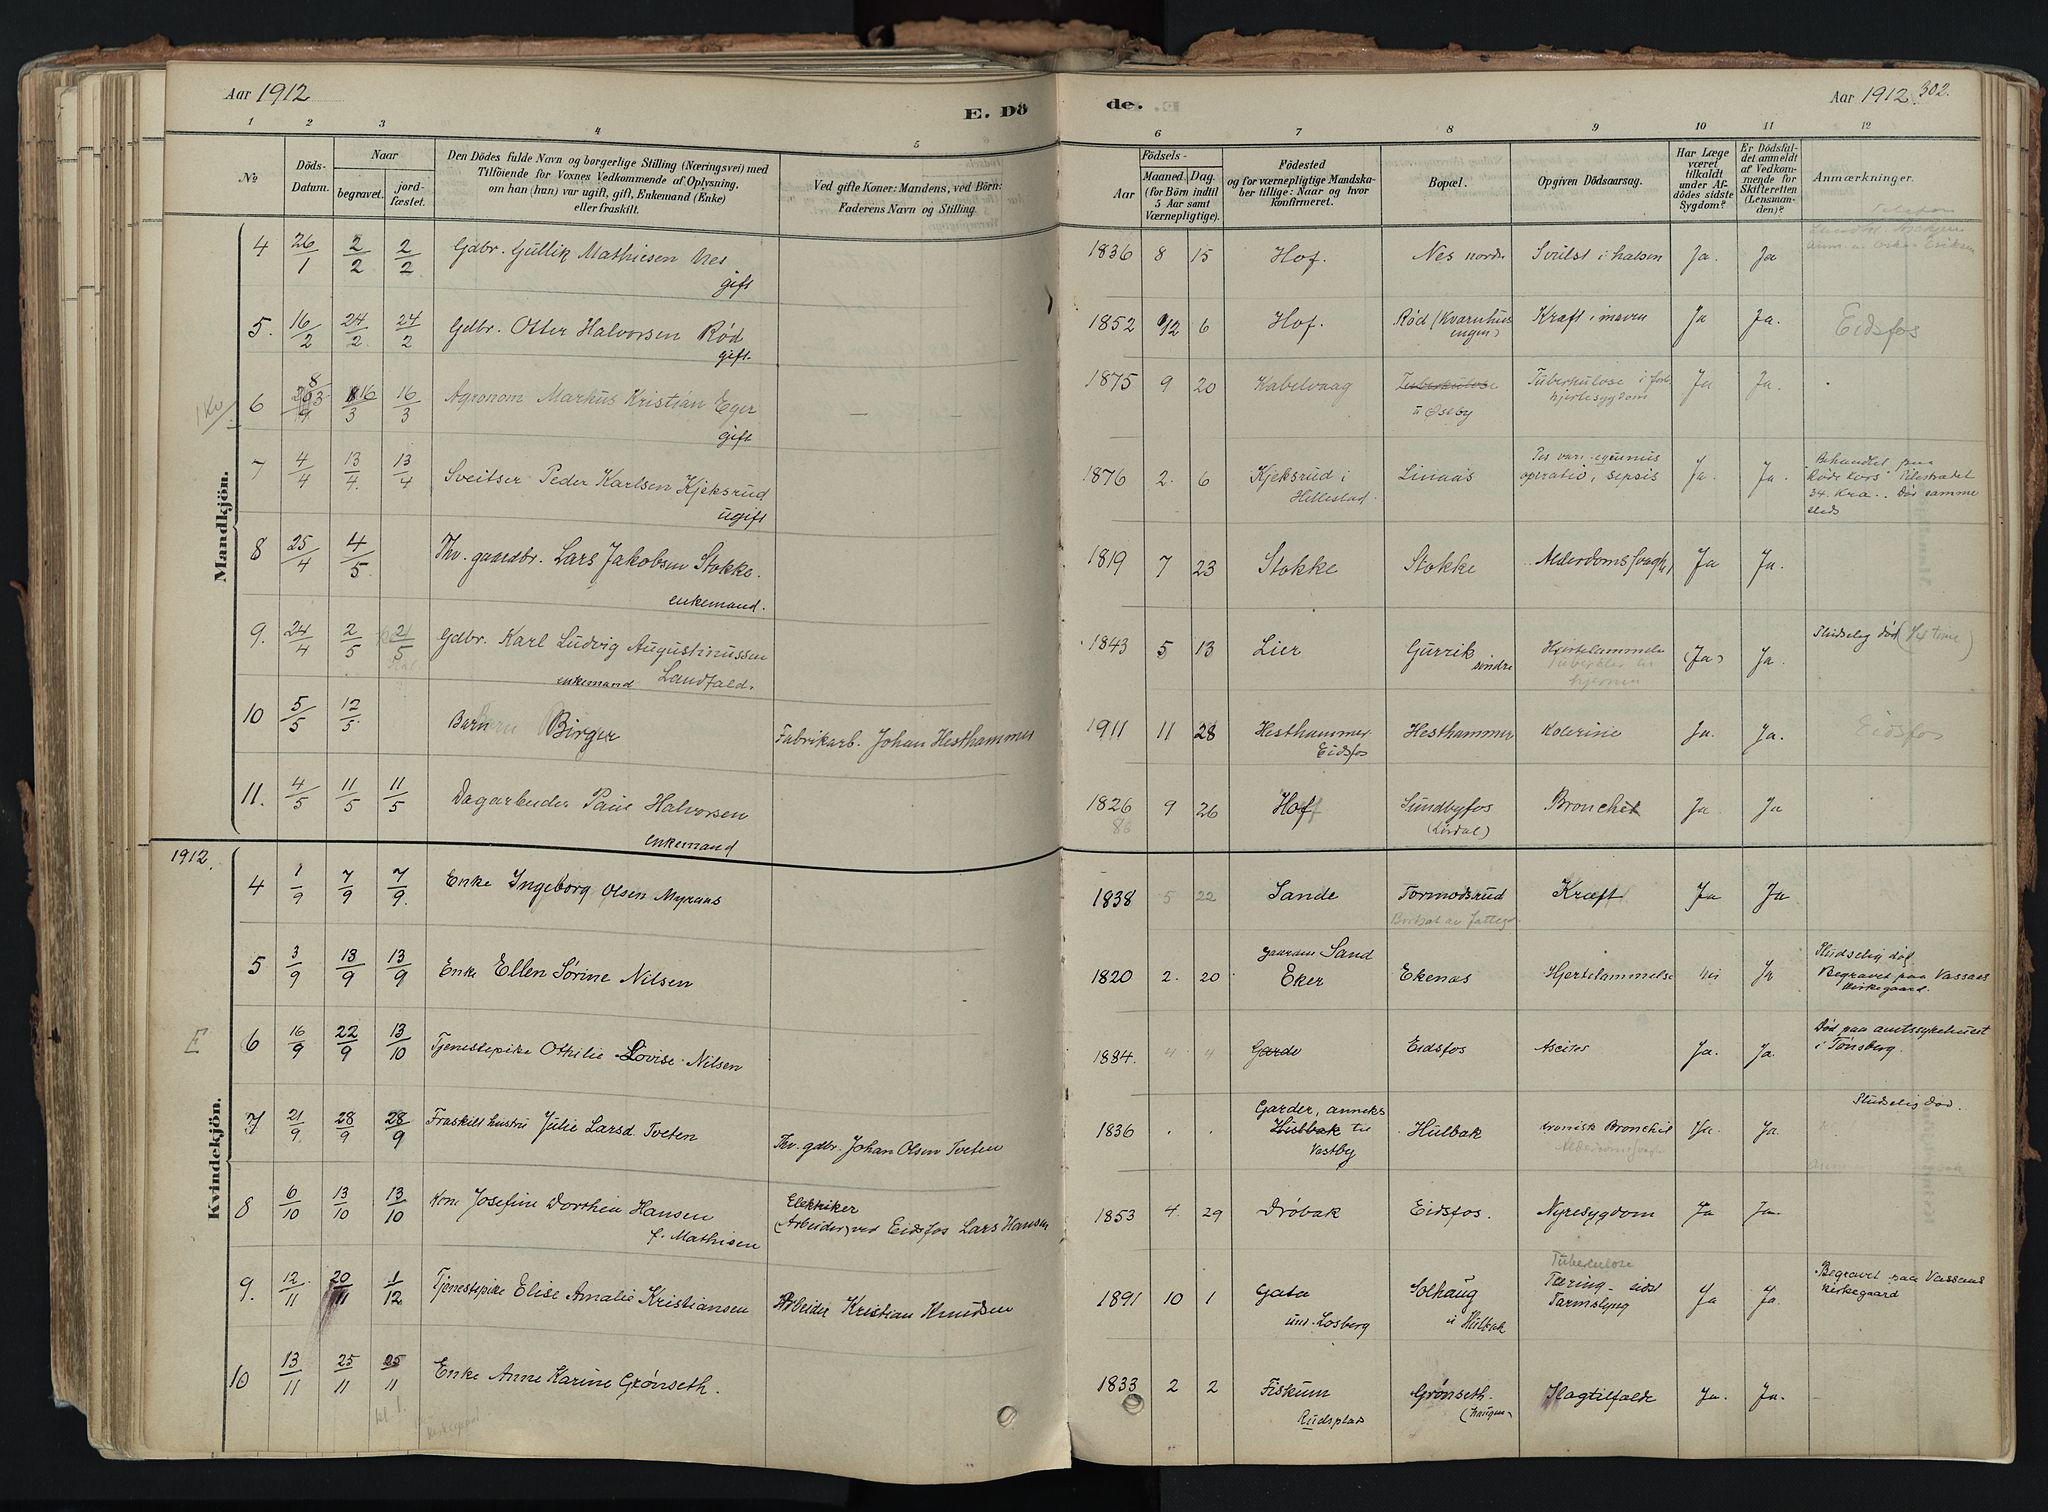 Aar 1912
E. Dö
de.
Aar 1912 302.
1 2 3 4 5 6 7 8 9 10 11 12
No
Döds-
Datum.
Naar
begravet.
jord-
fæstet.
Den Dödes fulde Navn og borgerlige Stilling (Næringsvei) med
Tilföiende for Voxnes Vedkommende af Oplysning,
om han (hun) var ugift, gift, Enkemand (Enke)
eller fraskilt.
Ved gifte Koner: Mandens, ved Börn:
Faderens Navn og Stilling.
Födsels-
Aar
Maaned. Dag.
(for Börn indtil
5 Aar samt
Værnepligtige).
Födested
og for værnepligtige Mandska-
ber tillige: Naar og hvor
konfirmeret.
Bopæl.
Opgiven Dödsaarsag.
Har Læge
været
tilkaldt
under Af-
dödes sidste
Sygdom?
Er Dödsfal-
det anmeldt
af Vedkom-
mende for
Skifteretten
(Lensman-
den)?
Anmærkninger.
Mandkjön.
4 26/1 2/2 2/2 Gdbr. Gullik Mathiesen Nes
gift
1836 8 15 Hof. Nes nordre Svulst i halsen Ja. Ja
5. 16/2 24/2 24/2 Gdbr. Otter Halvorsen Rød
gift.
1852 12 6 Hof. Rød (Kvarnhus
engen) Kræft i maven Ja Ja. Eidsfos
6 16/3 16/3 Agronom Markus Kristian Eger
gift
—
1875 9 20 Kabelvaag Tuberkulose
u Øseby Tuberkulose i forb.
hjertesygdom Ja Ja.
7 4/4 13/4 13/4 Sveitser Peder Karlsen Kjeksrud
ugift
1876 2. 6 Kjeksrud i
Hillestad. Linaas Pes var. equinus
operatio, sepsis Ja. Ja. Behandlet paa
Røde Kors Pilestrædet
34. Kra. Død samme
steds
8 25/4 4/5 Fhv. gaardbr. Lars Jakobsen Stokke.
enkemand.
1819 7 23 Stokke Stokke Alderdomssvagh. Ja Ja.
9. 24/4 2/5 2/5 Gdbr. Karl Ludvig Augustinussen
enkemand Landfald.
1843 5 13 Lier Gurrik
søndre Hjertelammelse (Ja) Ja. Pludselig død
10 5/5 12/5 Barn Birger Fabrikarb. Johan Hesthammer
1911 11 28 Hesthammer
Eidsfos Hesthammer Kolerine Ja. Ja. Eidsfos
11. 4/5 11/5 11/5 Dagarbeider Paul Halvorsen
enkemand
1826 9 26 Hof Sundbyfos
(Lørdal) Bronchit Ja Ja
1912.
Kvindekjön.
4 1/9 7/9 7/9. Enke Ingeborg Olsen Myraas
1838 5 22 Sande Tormodsrud Kræft Ja Ja
5 3/9 13/9 13/9 Enke Ellen Sørine Nilsen
1820 2. 20 Sand
Eker Ekenæs Hjertelammelse Nei Ja Pludselig død
Begravet paa Vassaas
kirkegaard.
E 6 16/9 22/9 13/10 Tjenestepike Othilie Lovise Nilsen
1884. 4 4 Garde Eidsfos Ascites Ja. Ja. Død paa amtssykehuset
i Tønsberg.
7 21/9 28/9 28/9 Fraskilt hustru Julie Larsd. Tveten Fhv. gdbr. Johan Olsen Tveten
1836 . . Garder, anneks
Hulbak til
Vestby Hulbak kronisk Bronchit Ja. Ja. Pludselig død.
8 6/10 13/10 13/10 Kone Josefine Dorthea Hansen
f. Mathisen
Elektriker
(Arbeider) ved Eidsfos Lars Hansen
1853 4. 29 Drøbak Eidsfos. Nyresygdom Ja Ja.
9. 12/11 20/11 1/12 Tjenestepike Elise Amalie Kristiansen Arbeider Kristian Knudsen
1891 10 1 Gata
und. Losberg Solhaug
u Hulbak Tuberkulose
Tæring - sidst
Tarmslyng Ja Ja. Begravet paa Vassaas
kirkegaard
10 13/11 25/11 25/11 Enke Anne Karine Grønseth.
1833 2 2 Fiskum
Rudsplads Grønseth.
(haugen) Slagtilfælde Ja. Ja.
kl. 1.